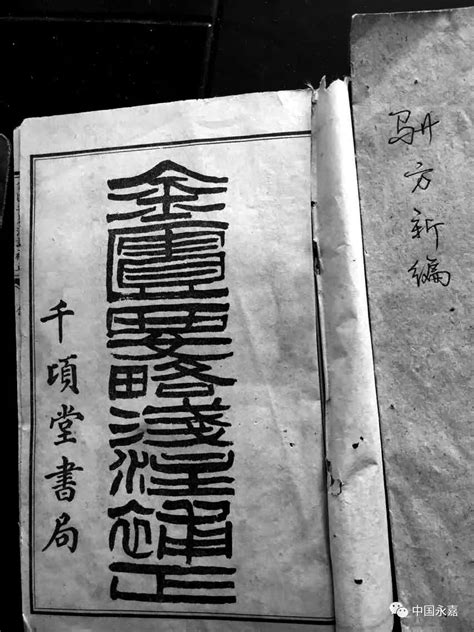 验方新编
金匱要略淺注補正
千頃堂書局
中国永嘉